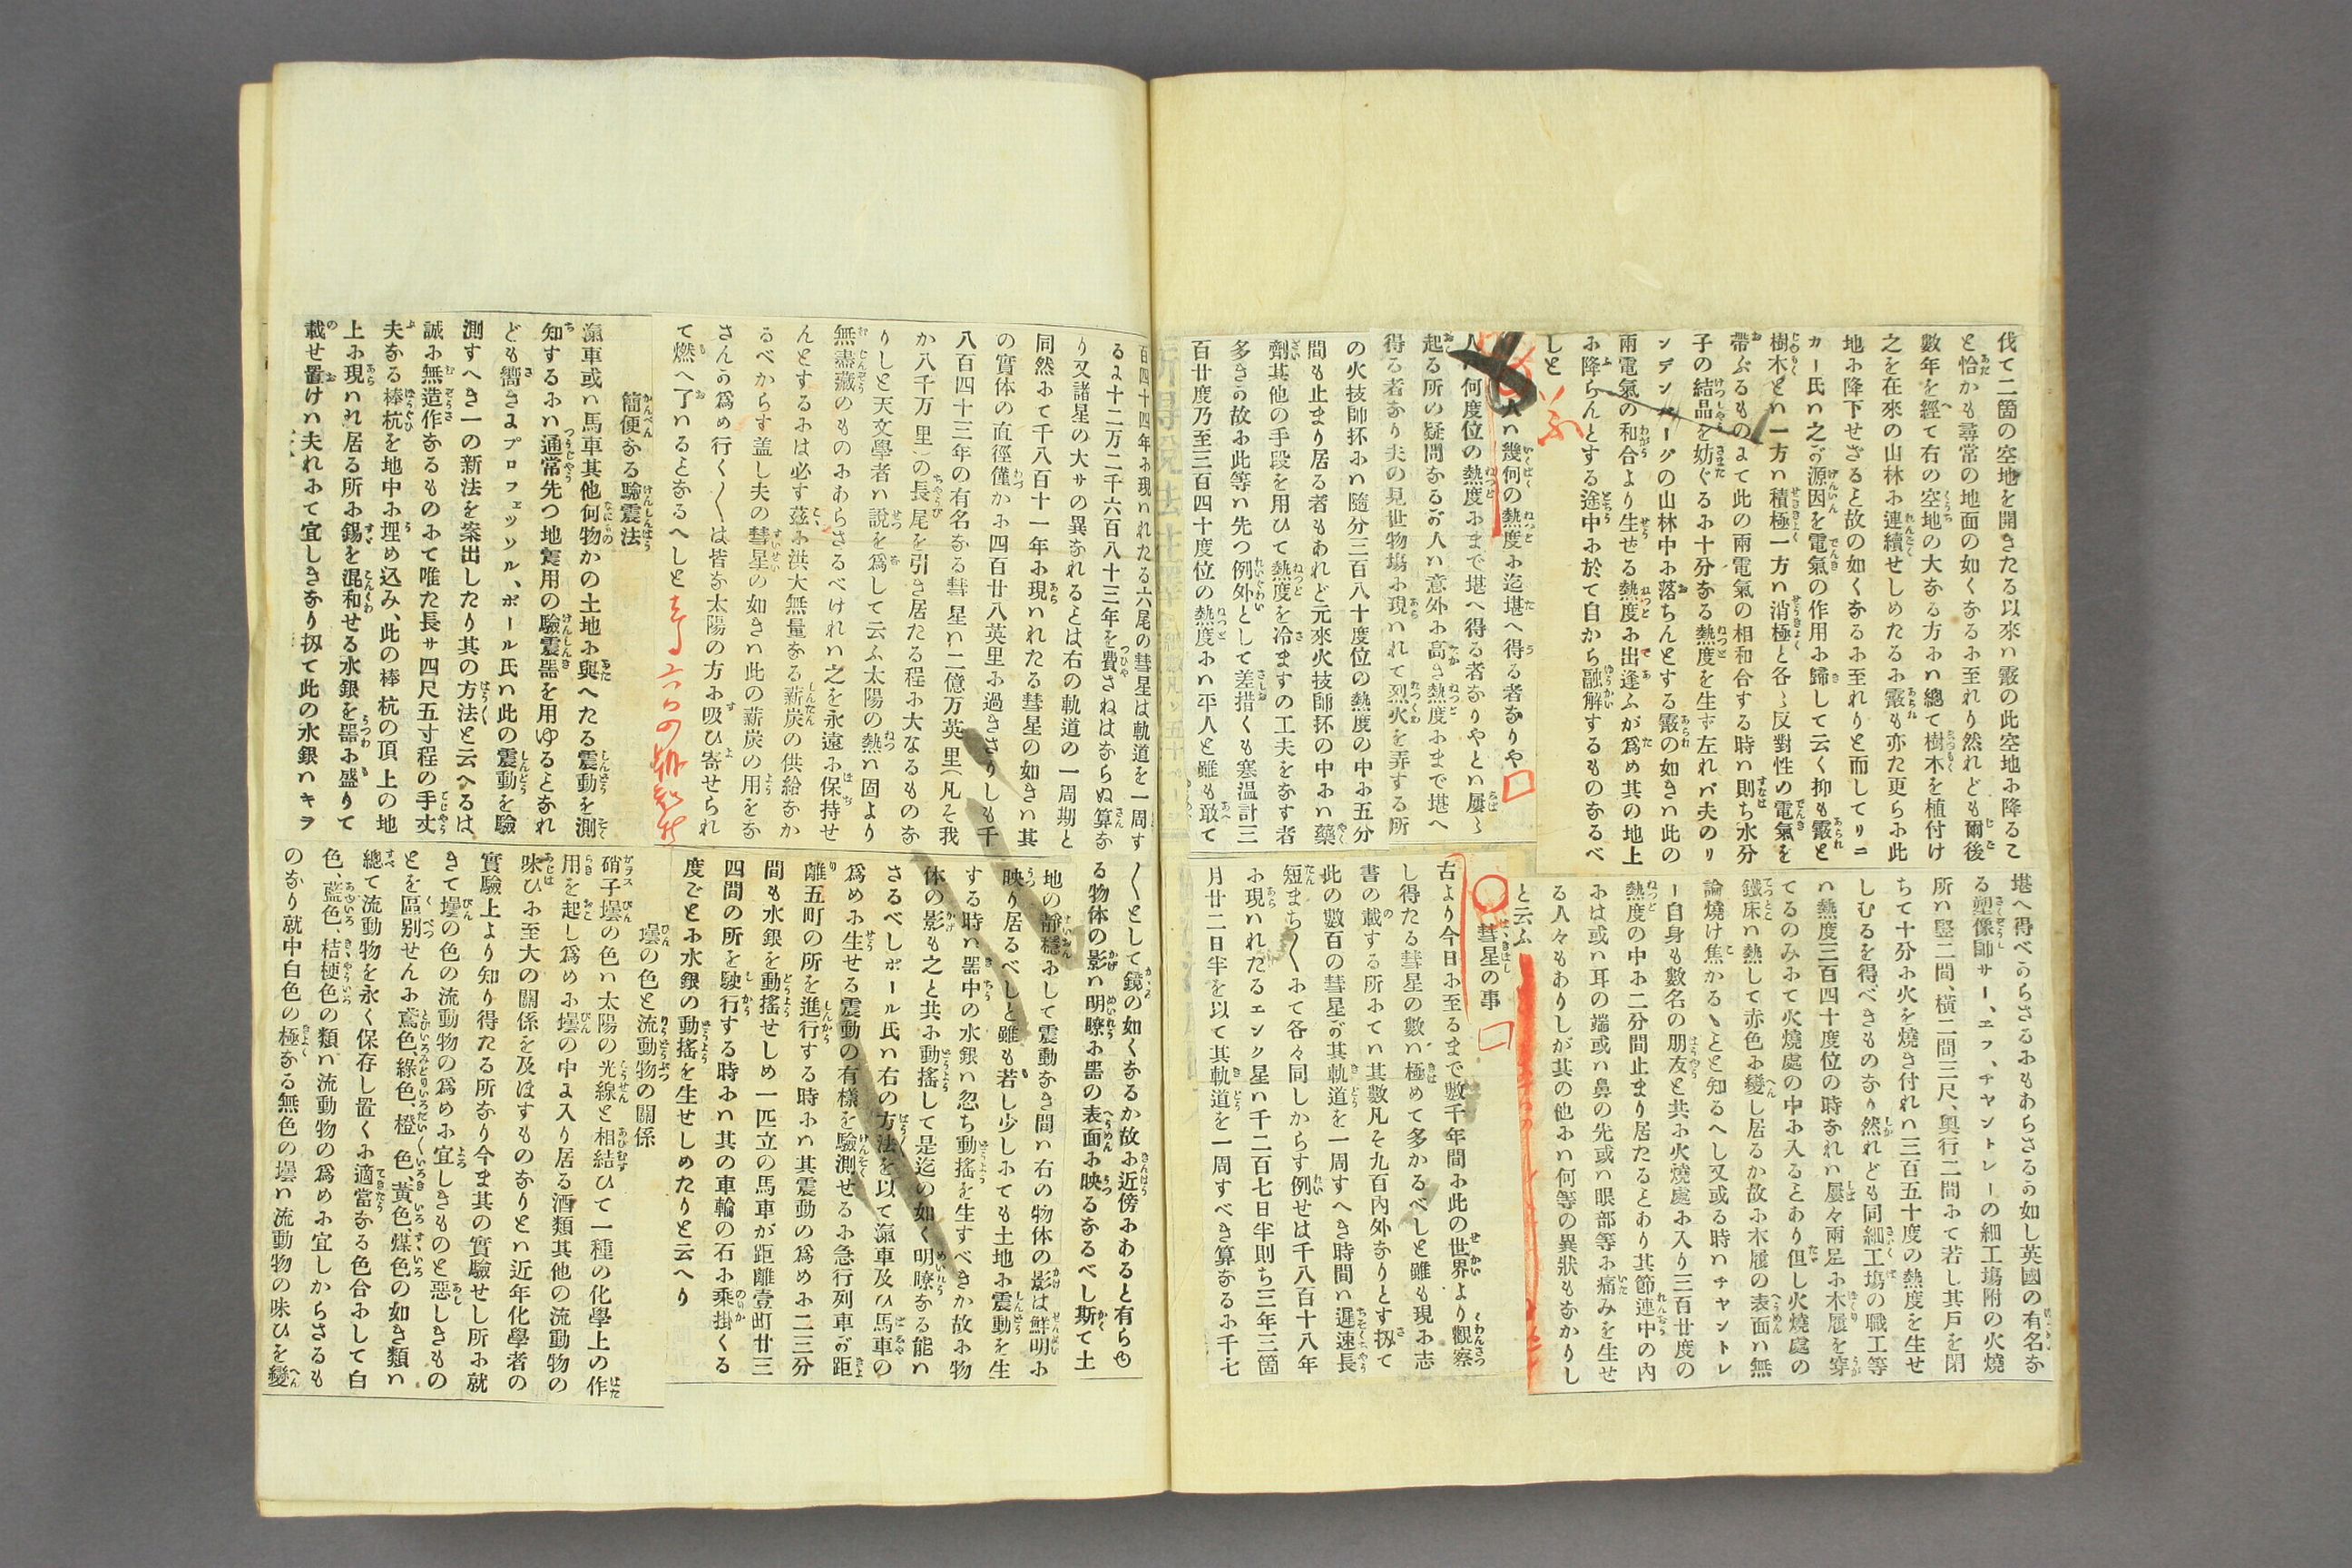 伐て二箇の空地を開きたる以來ハ霰の此空地ふ降るこ
と恰かも尋常の地面の如くなるふ至れり然れども爾後
數年を經て右の空地の大なる方ふハ總て樹木を植付け
之を在來の山林ふ連續せしめたるふ霰も亦た更らふ此
地ふ降下せざると故の如くなるふ至れりと而してリニ
カー氏ハ之が源因を電氣の作用ふ歸して云く抑も霰と
樹木とハ一方ハ積極一方ハ消極と各〻反對性の電氣を
帶ぶるものよて此の兩電氣の相和合する時ハ則ち水分
子の結晶を妨ぐるふ十分なる熱度を生ず左れバ夫のリ
ンデンバーグの山林中ふ落ちんとする霰の如きハ此の
兩電氣の和合より生せる熱度ふ出逢ふが爲め其の地上
ふ降らんとする途中ふ於て自から融解するものなるべ
しと
人ハ幾何の熱度ふ迄堪へ得る者なりや
人ハ何度位の熱度ふまで堪へ得る者なりやとハ屢〻
起る所の疑問なるが人ハ意外ふ高き熱度ふまで堪へ
得る者なり夫の見世物塲ふ現ハれて烈火を弄する所
の火技師抔ふハ隨分三百八十度位の熱度の中ふ五分
間も止まり居る者もあれど元來火技師抔の中ふハ藥
劑其他の手段を用ひて熱度を冷ますの工夫をなす者
多きが故ふ此等ハ先つ例外として差措くも寒温計三
百廿度乃至三百四十度位の熱度ふハ平人と雖も敢て
堪へ得べからさるふもあらさるが如し英國の有名な
る塑像師サー、エフ、チャントレーの細工塲附の火燒
所ハ竪二間、橫二間三尺、奧行二間ふて若し其戸を閉
ちて十分ふ火を燒き付れハ三百五十度の熱度を生せ
しむるを得べきものなり然れども同細工塲の職工等
ハ熱度三百四十度位の時なれハ屢々兩足ふ木履を穿
てるのみふて火燒處の中ふ入るとあり但し火燒處の
鐵床ハ熱して赤色ふ變し居るか故ふ木履の表面ハ無
論燒け焦かるゝとと知るへし又或る時ハチャントレ
ー自身も數名の朋友と共ふ火燒處ふ入り三百廿度の
熱度の中ふ二分間止まり居たるとあり其節連中の內
ふは或ハ耳の端或ハ鼻の先或ハ眼部等ふ痛みを生せ
る人々もありしが其の他ふハ何等の異狀もなかりし
と云ふ
彗星の事
古より今日ふ至るまで數千年間ふ此の世界より觀察
し得たる彗星の數ハ極めて多かるべしと雖も現ふ志
書の載する所ふてハ其數凡そ九百內外なりとす扨て
此の數百の彗星が其軌道を一周すへき時間ハ遲速長
短まち〳〵ふて各々同しからす例せは千八百十八年
ふ現ハれたるエンク星ハ千二百七日半則ち三年三箇
月廿二日半を以て其軌道を一周すべき算なるふ千七
百四十四年ふ現ハれたる六尾の彗星は軌道を一周す
るよ十二万二千六百八十三年を費さねはならぬ算な
り又諸星の大サの異なれるとは右の軌道の一周期と
同然ふて千八百十一年ふ現ハれたる彗星の如きハ其
の實体の直徑僅かふ四百廿八英里ふ過きさりしも千
八百四十三年の有名なる彗星ハ二億万英里（凡そ我
か八千万里）の長尾を引き居たる程ふ大なるものな
りしと天文學者ハ說を爲して云ふ太陽の熱ハ固より
無盡藏のものふあらさるべけれハ之を永遠ふ保持せ
んとするふは必す茲ふ洪大無量なる薪炭の供給なか
るべからす盖し夫の彗星の如きハ此の薪炭の用をな
さんか爲め行く〳〵は皆な太陽の方ふ吸ひ寄せられ
て燃へ了ハるとなるへしと
簡便なる驗震法
瀛車或ハ馬車其他何物かの土地ふ與へたる震動を測
知するふハ通常先つ地震用の驗震器を用ゆるとなれ
ども嚮きよプロフェッソル、ポール氏ハ此の震動を驗
測すへき一の新法を案出したり其の方法と云へるは
誠ふ無造作なるものふて唯た長サ四尺五寸程の手丈
夫なる棒杭を地中ふ埋め込み、此の棒杭の頂上の地
上ふ現ハれ居る所ふ錫を混和せる水銀を器ふ盛りて
載せ置けハ夫れふて宜しきなり扨て此の水銀ハキヲ
〳〵として鏡の如くなるか故ふ近傍ふあると有らゆ
る物体の影ハ明瞭ふ器の表面ふ映るなるべし斯て土
地の靜穩ふして震動なき間ハ右の物体の影は鮮明ふ
映り居るべしと雖も若し少しふても土地ふ震動を生
する時ハ器中の水銀ハ忽ち動搖を生すべきか故ふ物
体の影も之と共ふ動搖して是迄の如く明瞭なる能ハ
さるべしポール氏ハ右の方法を以て瀛車及ひ馬車の
爲めふ生せる震動の有樣を驗測せるふ急行列車が距
離五町の所を進行する時ふハ其震動の爲めふ二三分
間も水銀を動搖せしめ一匹立の馬車が距離壹町廿三
四間の所を駛行する時ふハ其の車輪の石ふ乘掛くる
度ごとふ水銀の動搖を生せしめたりと云へり
壜の色と流動物の關係
硝子壜の色ハ太陽の光線と相結ひて一種の化學上の作
用を起し爲めふ壜の中よ入り居る酒類其他の流動物の
味ひふ至大の關係を及ほすものなりとハ近年化學者の
實驗上より知り得たる所なり今ま其の實驗せし所ふ就
きて壜の色の流動物の爲めふ宜しきものと惡しきもの
とを區别せんふ鳶色、綠色、橙色、黃色、煤色の如き類ハ
總て流動物を永く保存し置くふ適當なる色合ふして白
色、藍色、桔梗色の類ハ流動物の爲めふ宜しからさるも
のなり就中白色の極なる無色の壜ハ流動物の味ひを變